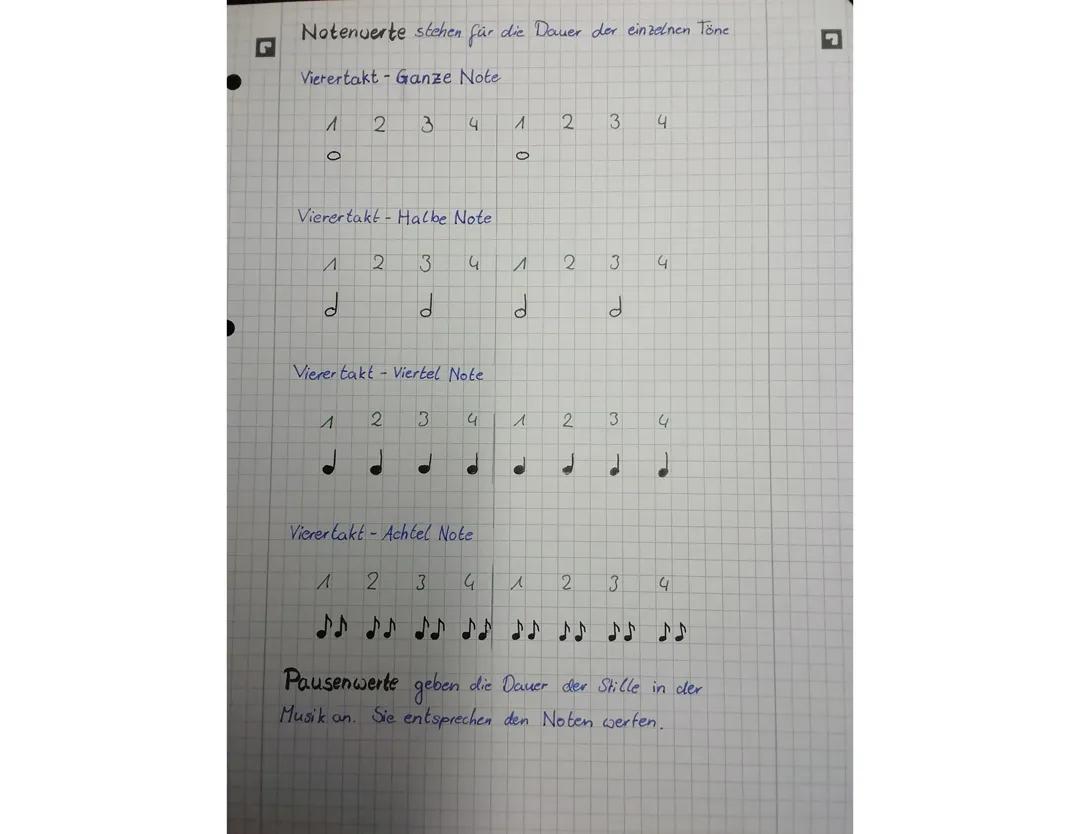 Notenwerte stehen für die Dauer der einzelnen Töne
Vierertakt - Ganze Note
1 2 3 4 1 2 3 4
Vierertakt - Halbe Note
1 2 3 4 1 2 3 4
Vierertakt - Viertel Note
1 2 3 4 1 2 3 4
Vierertakt - Achtel Note
1 2 3 4 1 2 3 4
Pausenwerte geben die Dauer der Stille in der
Musik an. Sie entsprechen den Noten werten.